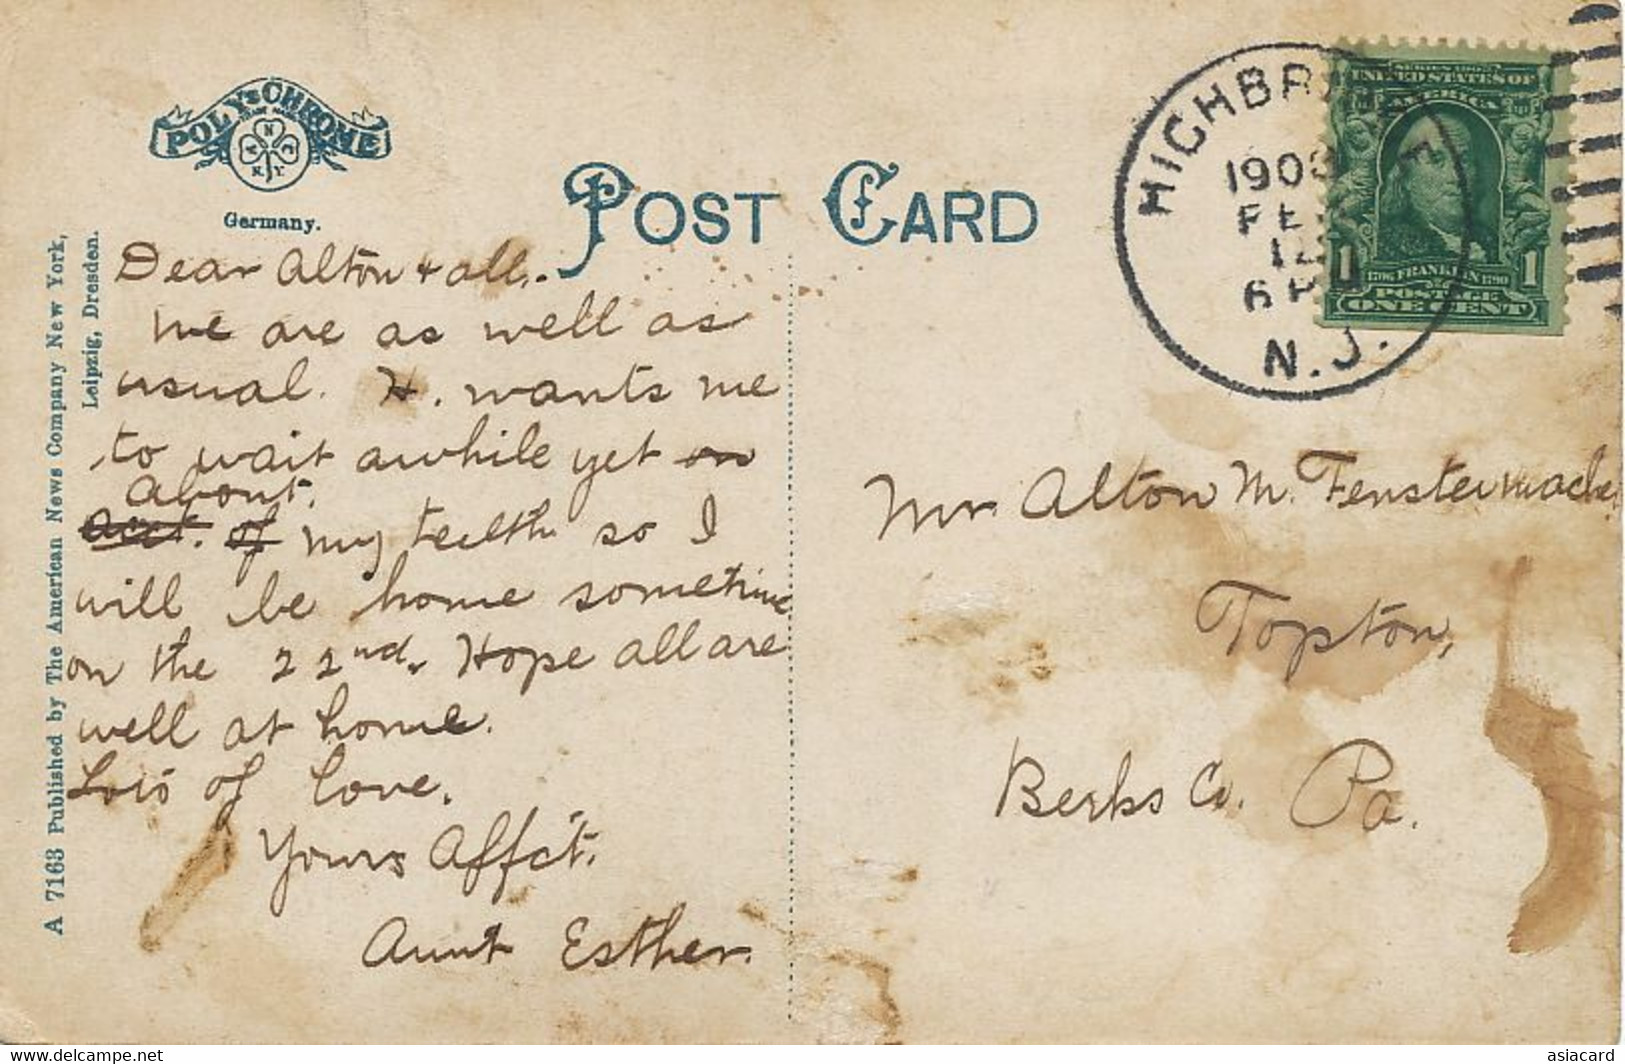 POLY-CHROME
Germany.
POST CARD
A 7163 Published by The American News Company New York,
Leipzig, Dresden.
Dear Alton & all.
We are as well as
usual. H. wants me
to wait awhile yet on
about
acct. of my teeth so I
will be home sometime
on the 22nd. Hope all are
well at home.
Lots of love.
Yours Affct.
Aunt Esther.
HIGHBRIDGE
190
FE
12
6 P
N.J.
SERIES 1902
UNITED STATES OF
AMERICA
1 1
1706 FRANKLIN 1790
POSTAGE
ONE CENT
Mr Alton M. Fenstermacher
Topton,
Berks Co. Pa.
www.delcampe.net
asiacard